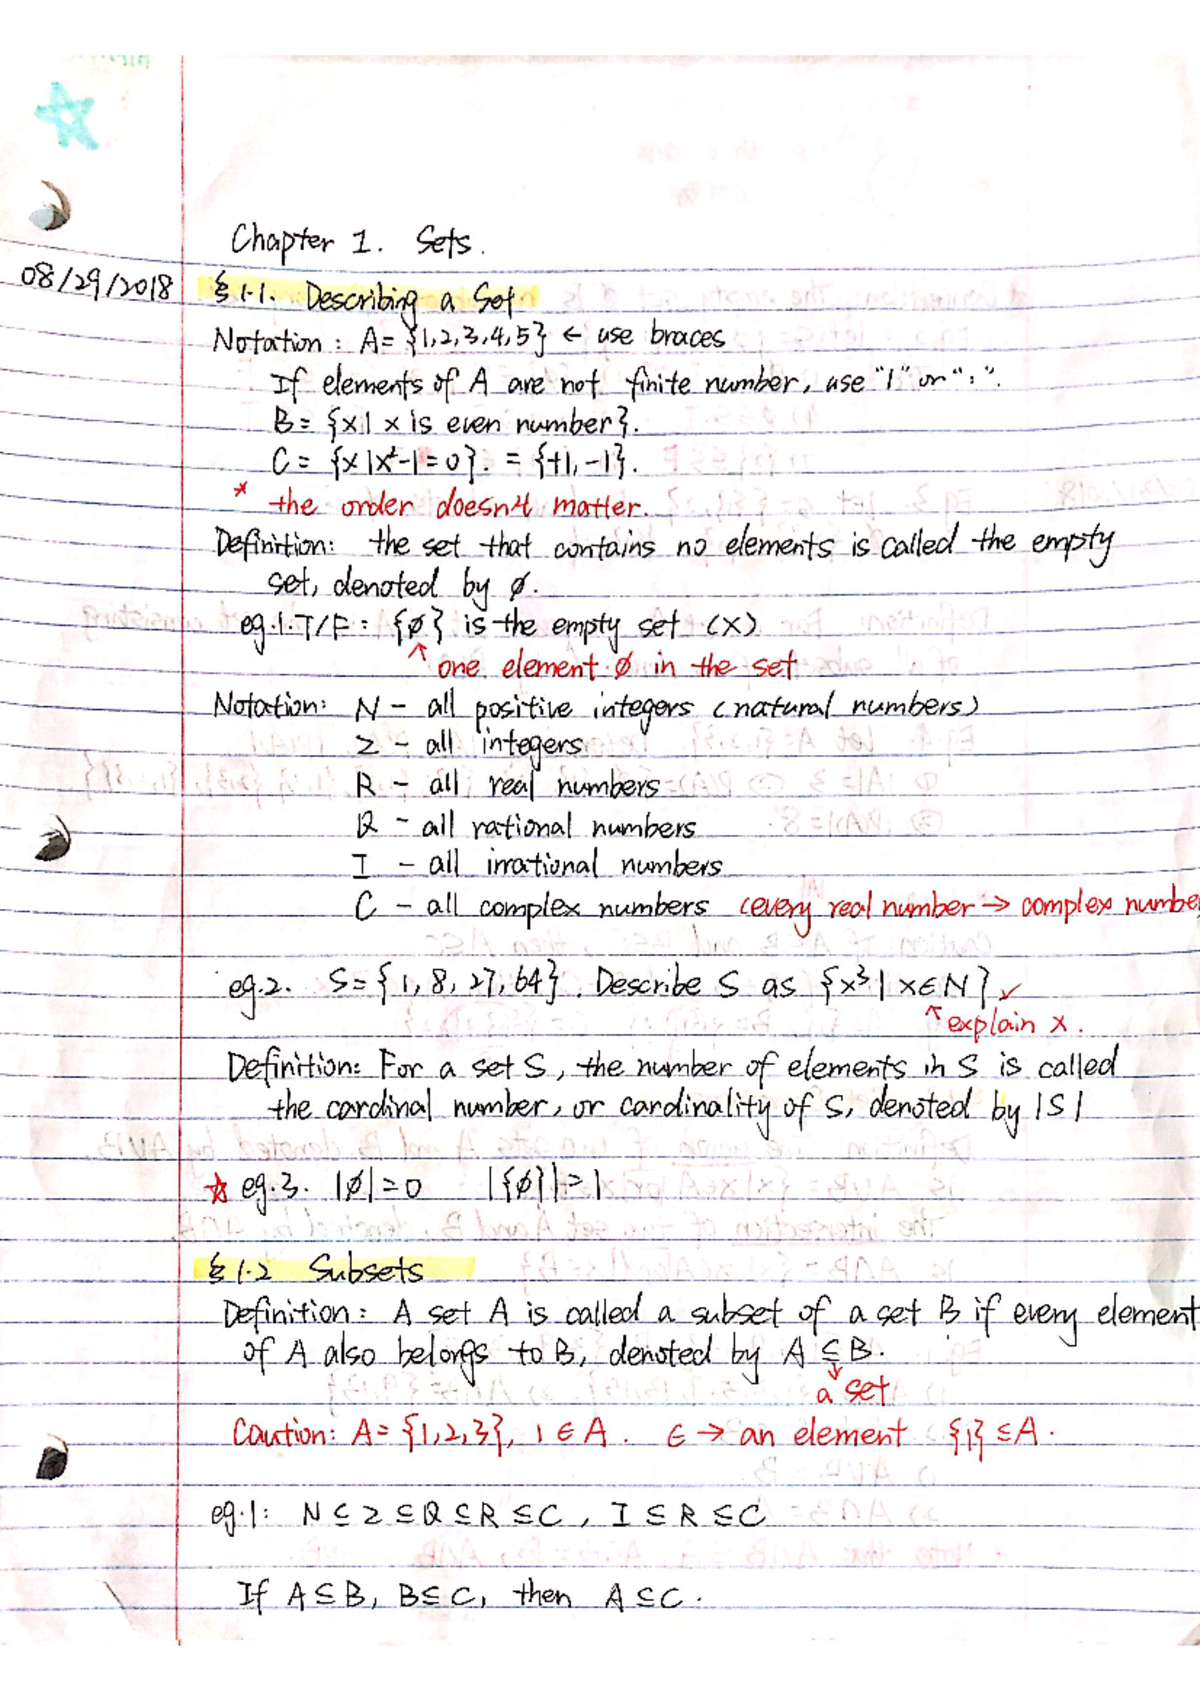 Chapter 1. Sets.
08/29/2018 § 1.1. Describing a Set
Notation: A = {1,2,3,4,5} ← use braces
If elements of A are not finite number, use "|" or ":".
B = {x | x is even number}.
C = {x | x²-1=0}. = {+1, -1}.
* the order doesn't matter.
Definition: the set that contains no elements is called the empty
set, denoted by ∅.
eg.1. T/F: {∅} is the empty set (X)
↑ one element ∅ in the set
Notation: N - all positive integers (natural numbers)
Z - all integers
R - all real numbers
Q - all rational numbers
I - all irrational numbers
C - all complex numbers (every real number → complex numbe
eg.2. S = {1, 8, 27, 64}. Describe S as {x³ | x∈N} ✓
↑ explain x.
Definition: For a set S, the number of elements in S is called
the cardinal number, or cardinality of S, denoted by |S|
☆ eg.3. |∅| = 0 |{∅}| = 1
§ 1.2 Subsets
Definition: A set A is called a subset of a set B if every element
of A also belongs to B, denoted by A ⊆ B.
↓
a set
Caution: A = {1,2,3}, 1 ∈ A. ∈ → an element {1} ⊆ A.
eg.1: N ⊆ Z ⊆ Q ⊆ R ⊆ C, I ⊆ R ⊆ C
If A ⊆ B, B ⊆ C, then A ⊆ C.